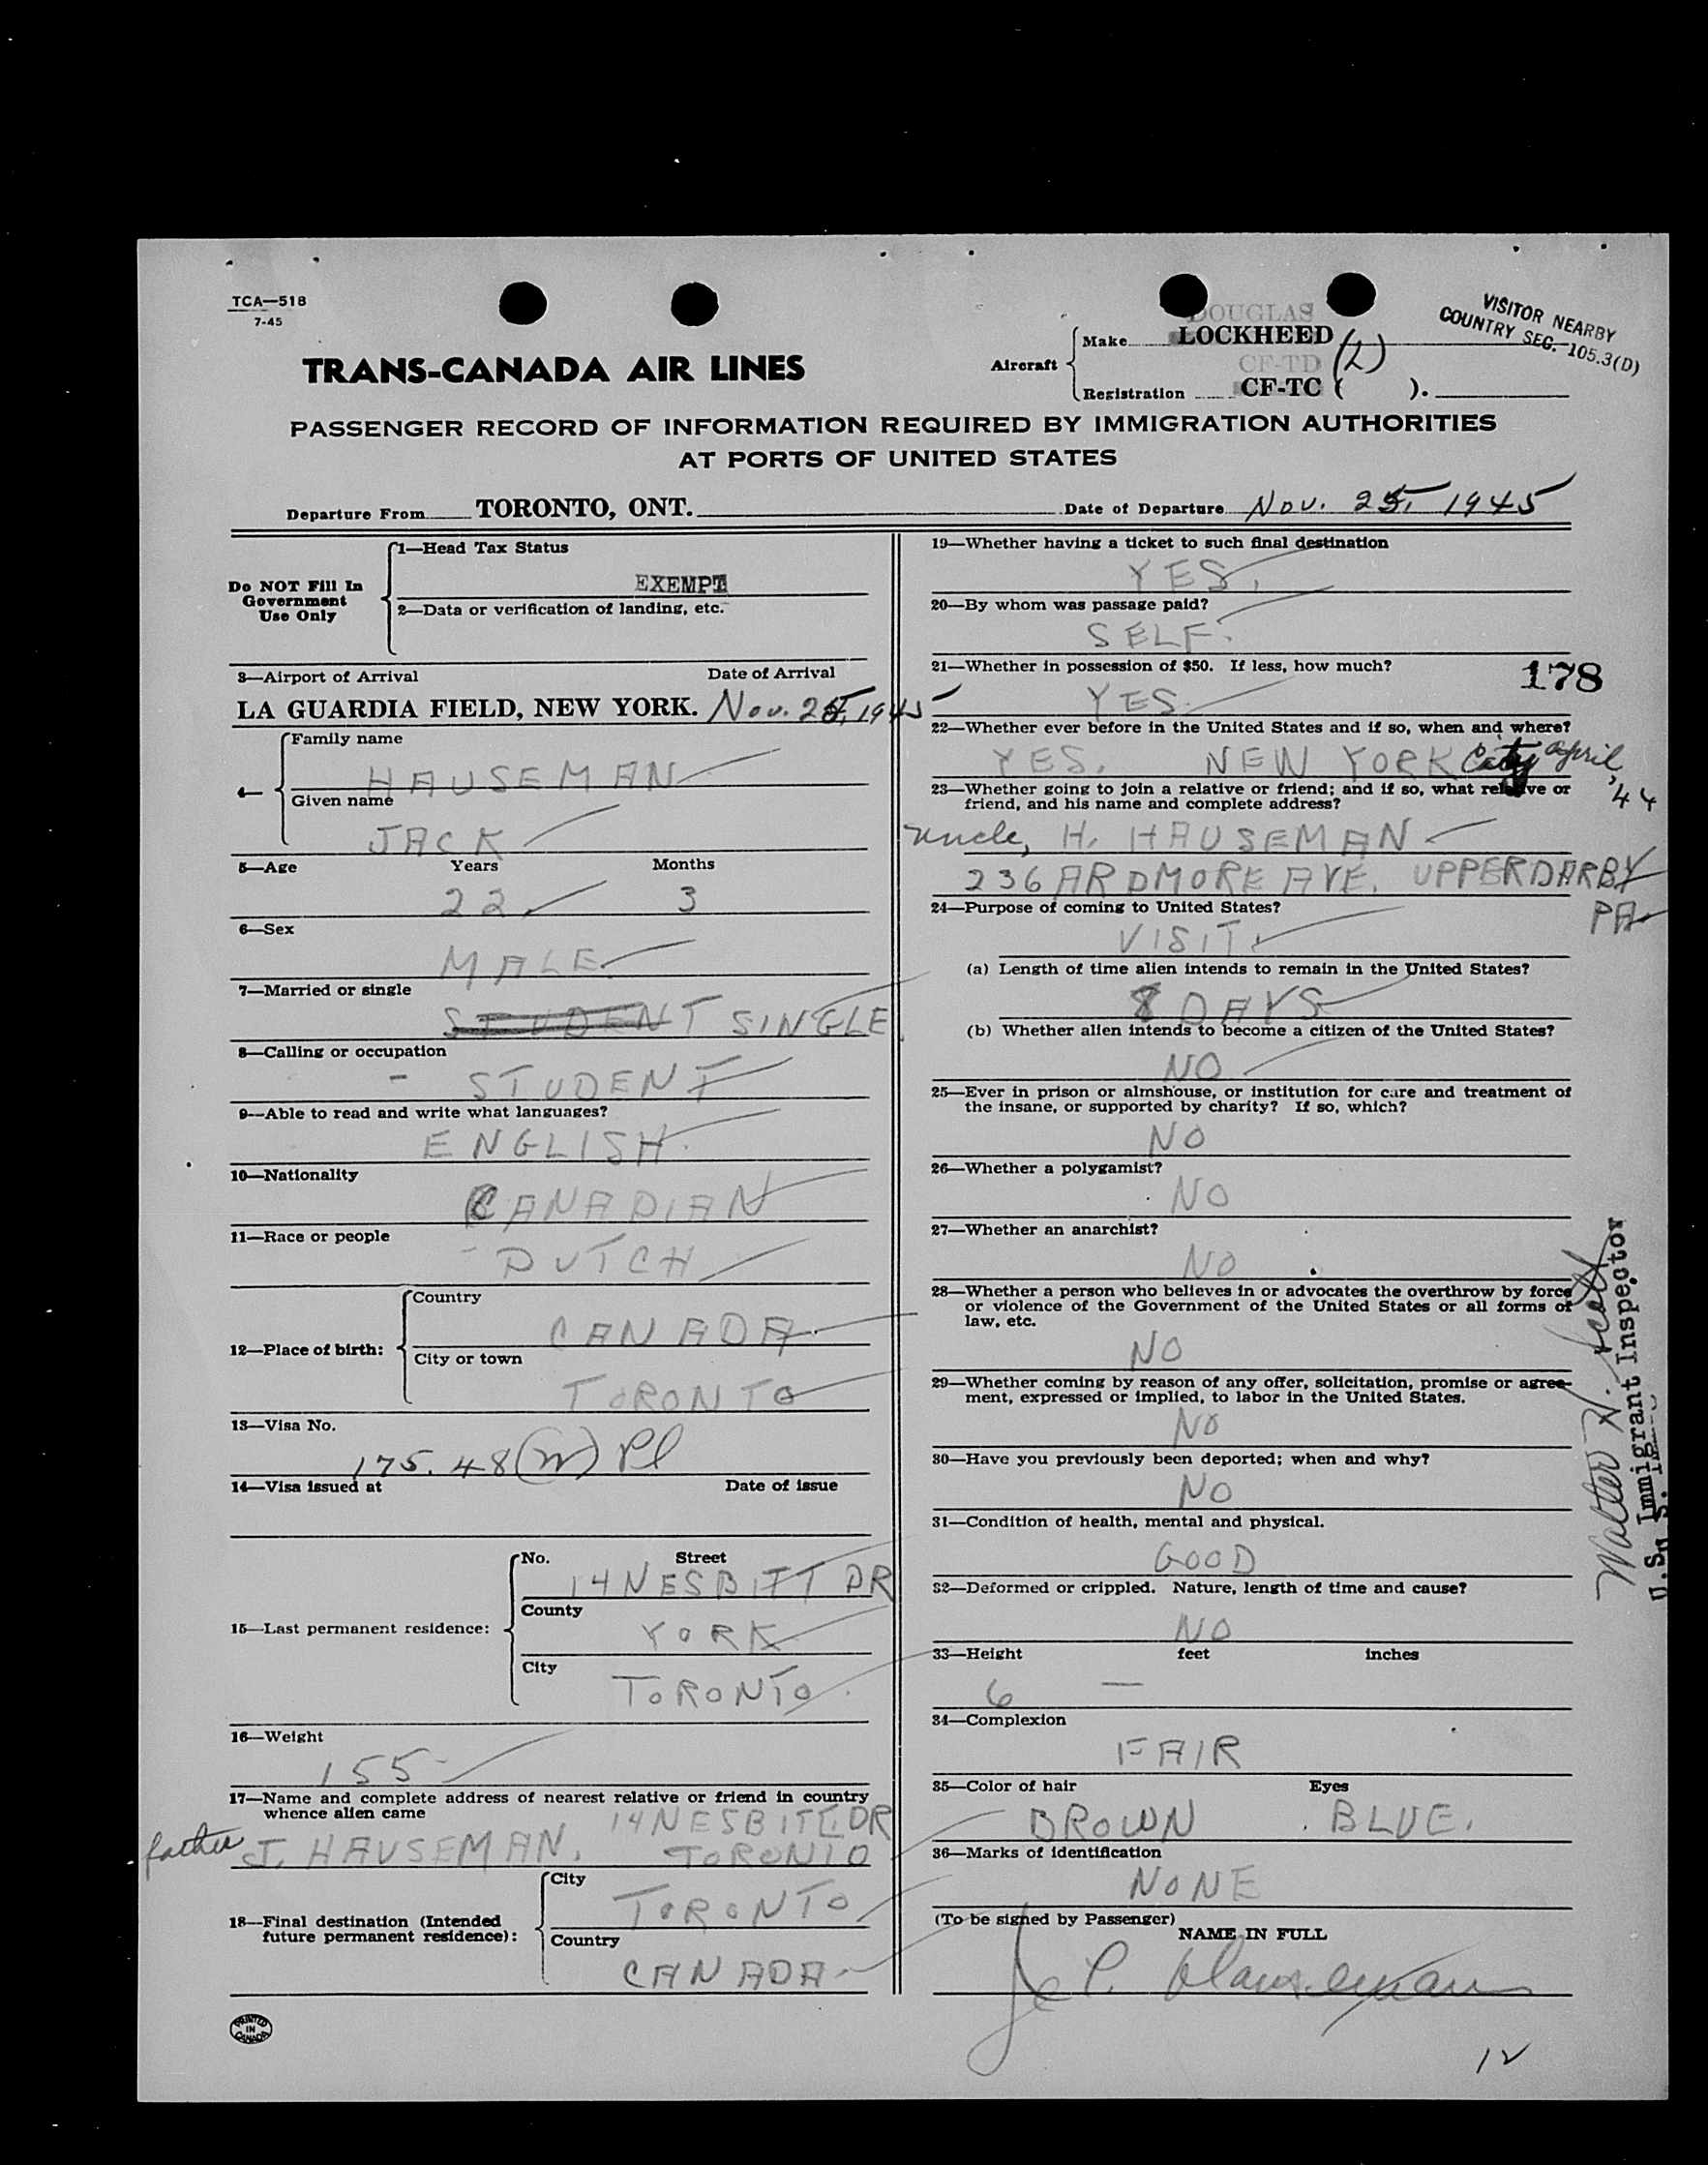 TCA—518
7-45
VISITOR NEARBY
COUNTRY SEC. 105.3(D)
TRANS-CANADA AIR LINES
Aircraft
DOUGLAS
Make LOCKHEED
CF-TD
Registration CF-TC ( ).
PASSENGER RECORD OF INFORMATION REQUIRED BY IMMIGRATION AUTHORITIES
AT PORTS OF UNITED STATES
Departure From TORONTO, ONT. Date of Departure Nov. 25, 1945
Do NOT Fill In
Government
Use Only
1—Head Tax Status
EXEMPT
2—Data or verification of landing, etc.
3—Airport of Arrival Date of Arrival
LA GUARDIA FIELD, NEW YORK. Nov. 25, 1945
4—
Family name
HAUSEMAN
Given name
JACK
5—Age Years Months
22 3
6—Sex
MALE
7—Married or single
STUDENT SINGLE
8—Calling or occupation
- STUDENT
9—Able to read and write what languages?
ENGLISH.
10—Nationality
CANADIAN
11—Race or people
- DUTCH
12—Place of birth:
Country
CANADA
City or town
TORONTO
13—Visa No.
175.48 Pl
14—Visa issued at Date of issue
15—Last permanent residence:
No. Street
14 NESBITT DR
County
YORK
City
TORONTO
16—Weight
155
17—Name and complete address of nearest relative or friend in country
whence alien came
14 NESBITT DR
father J. HAUSEMAN. TORONTO
18—Final destination (Intended
future permanent residence):
City
TORONTO
Country
CANADA
PRINTED
IN
CANADA
19—Whether having a ticket to such final destination
YES.
20—By whom was passage paid?
SELF.
21—Whether in possession of $50. If less, how much?
178
YES
22—Whether ever before in the United States and if so, when and where?
YES. NEW YORK City April, '44
23—Whether going to join a relative or friend; and if so, what relative or
friend, and his name and complete address?
uncle, H. HAUSEMAN
236 ARDMORE AVE. UPPER DARBY
PA
24—Purpose of coming to United States?
VISIT.
(a) Length of time alien intends to remain in the United States?
8 DAYS
(b) Whether alien intends to become a citizen of the United States?
NO
25—Ever in prison or almshouse, or institution for care and treatment of
the insane, or supported by charity? If so, which?
NO
26—Whether a polygamist?
NO
27—Whether an anarchist?
NO
28—Whether a person who believes in or advocates the overthrow by force
or violence of the Government of the United States or all forms of
law, etc.
NO
29—Whether coming by reason of any offer, solicitation, promise or agree-
ment, expressed or implied, to labor in the United States.
NO
30—Have you previously been deported; when and why?
NO
31—Condition of health, mental and physical.
GOOD
32—Deformed or crippled. Nature, length of time and cause?
NO
33—Height feet inches
6 —
34—Complexion
FAIR
35—Color of hair Eyes
BROWN BLUE.
36—Marks of identification
NONE
(To be signed by Passenger)
NAME IN FULL
Hauseman
12
Walter
U.S. Immigrant Inspector